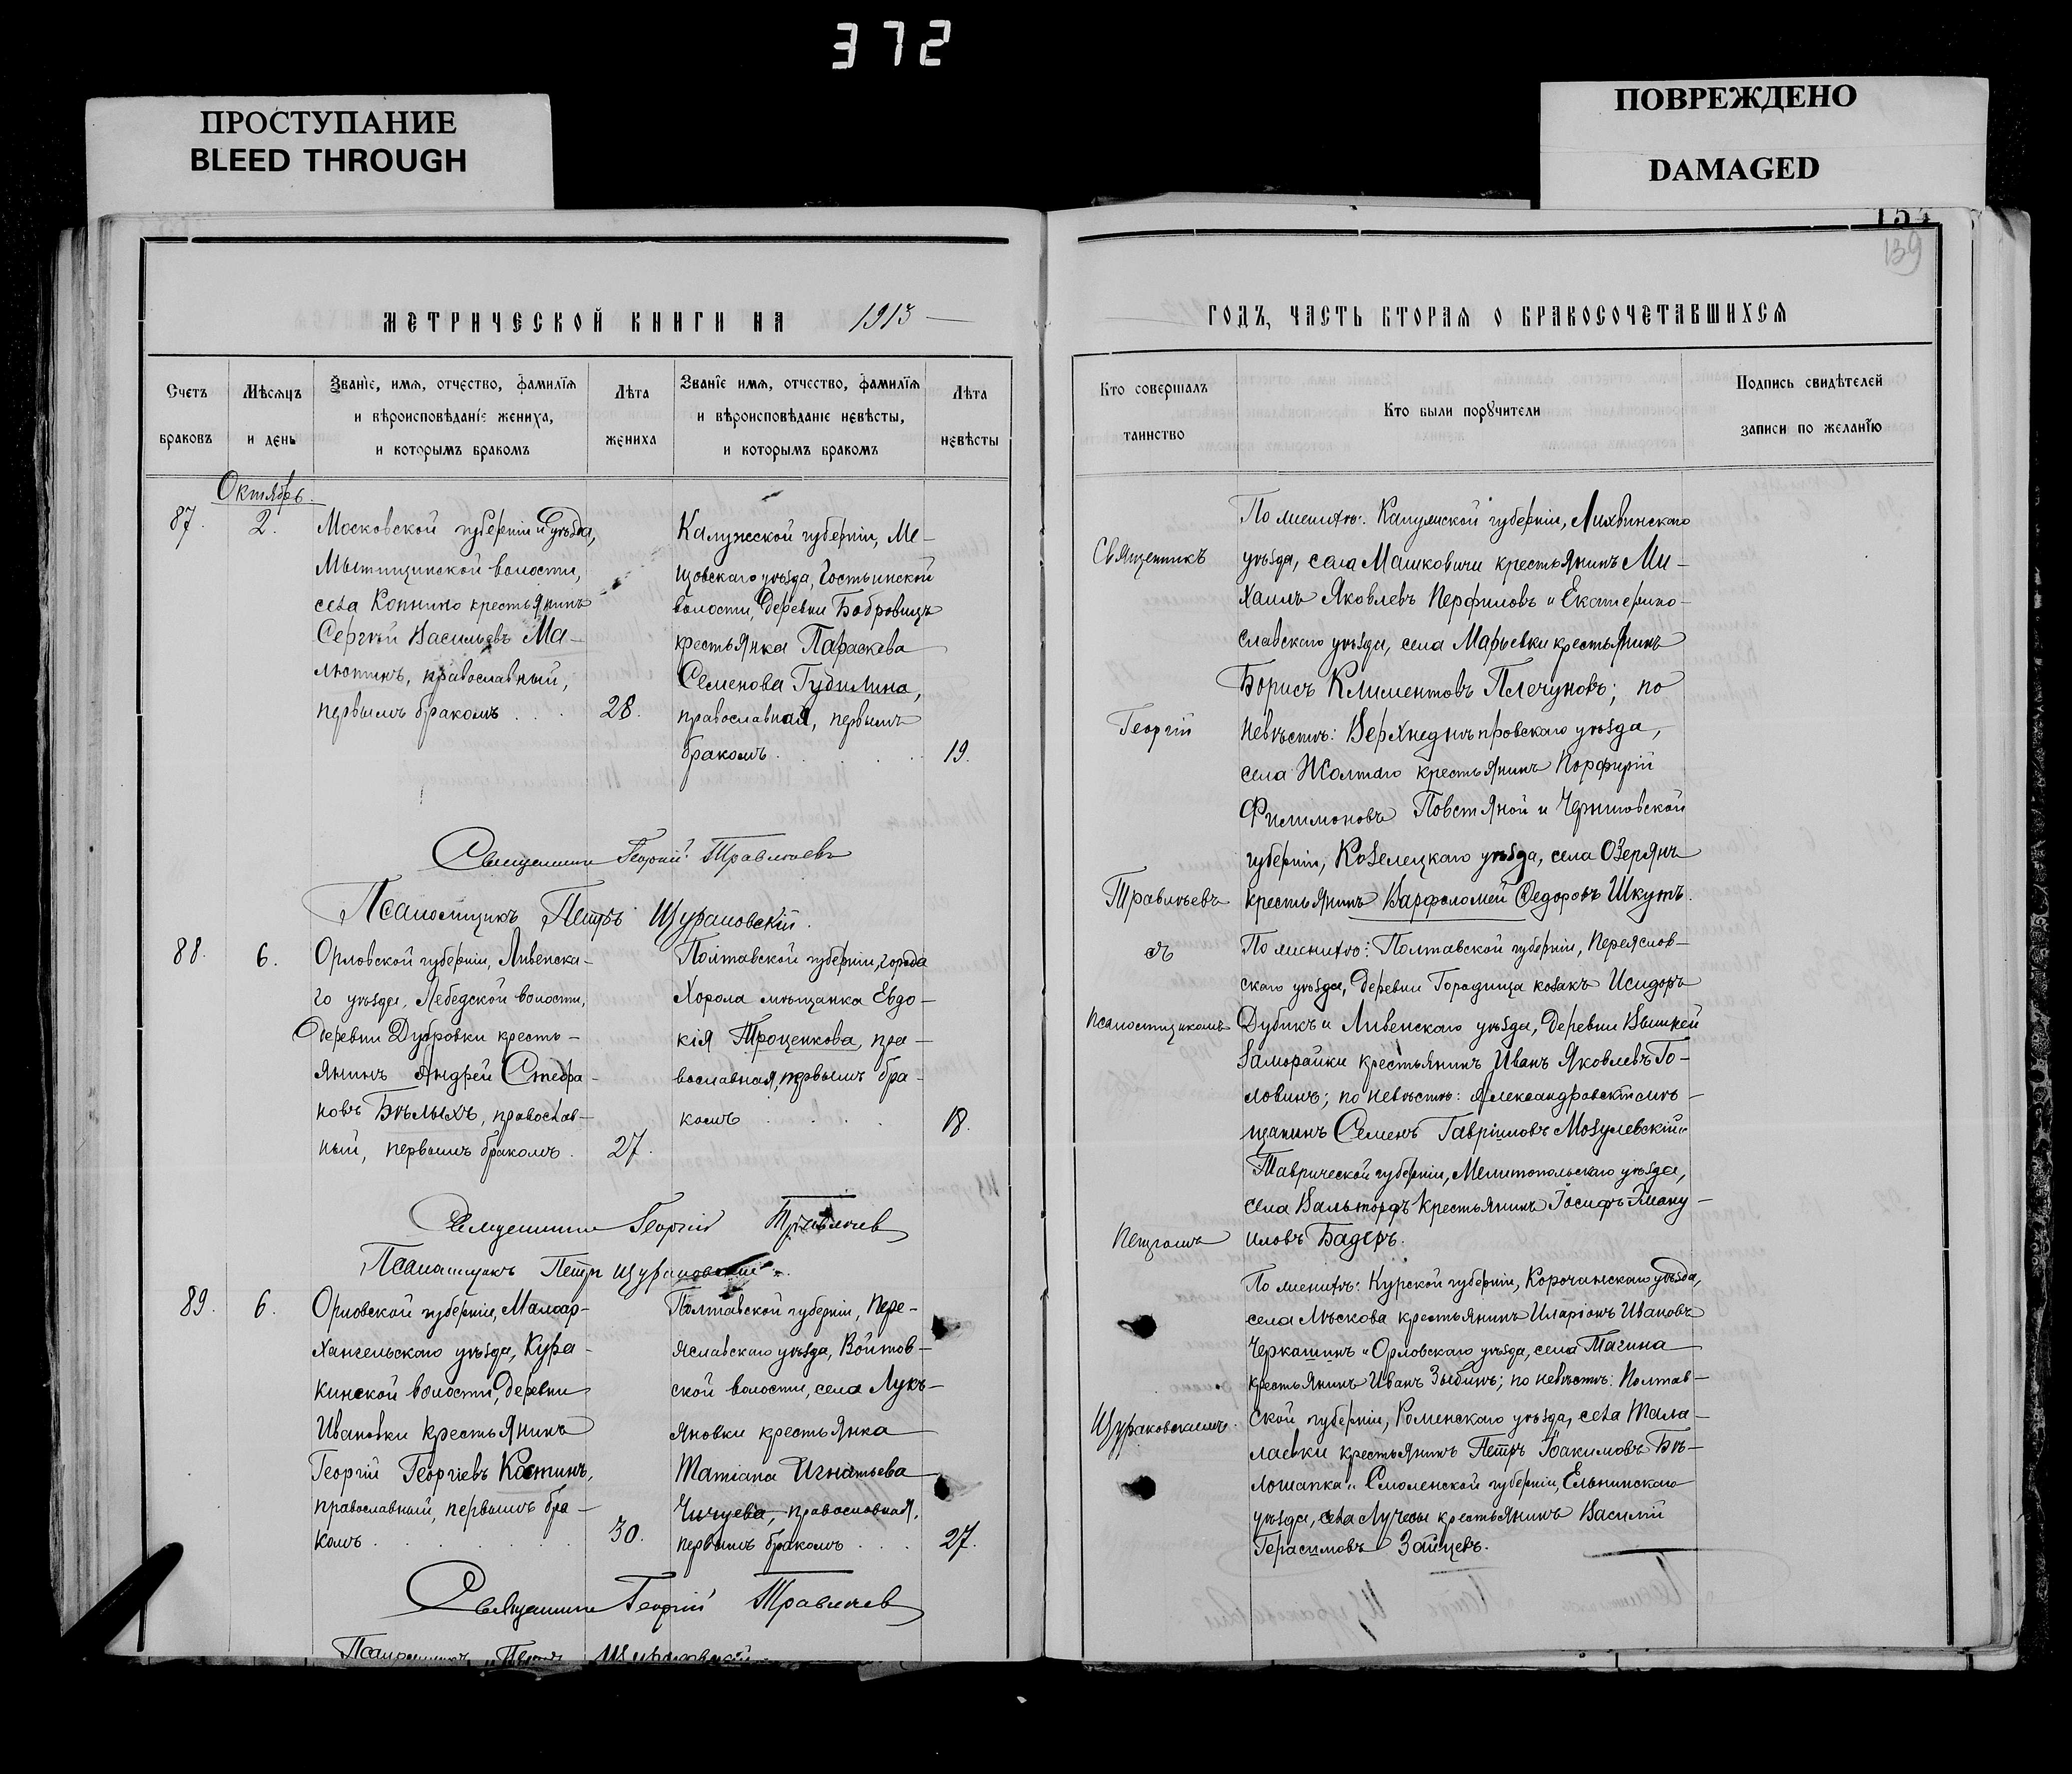 372
ПРОСТУПАНИЕ
BLEED THROUGH
ПОВРЕЖДЕНО
DAMAGED
154
139
МЕТРИЧЕСКОЙ КНИГИ НА 1913
Счетъ браковъ
Мѣсяцъ и день
Званіе, имя, отчество, фамилія
и вѣроисповѣданіе жениха,
и которымъ бракомъ
Лѣта жениха
Званіе имя, отчество, фамилія
и вѣроисповѣданіе невѣсты,
и которымъ бракомъ
Лѣта невѣсты
Октябрь.
87. 2.
Московской губерніи и уѣзда,
Мытищинской волости,
села Коннино крестьянинъ
Сергѣй Васильевъ Ма-
лютинъ, православный,
первымъ бракомъ . . . 28.
Калужской губерніи, Ме-
щовскаго уѣзда, Гостьинской
волости, деревни Бобровицъ
крестьянка Параскева
Семенова Гудилина,
православная, первымъ
бракомъ . . . . 19.
Священникъ Георгій Травлѣевъ
Псаломщикъ Петръ Щураковскій.
88. 6.
Орловской губерніи, Ливенска-
го уѣзда, Лебедской волости,
деревни Дубровки кресть-
янинъ Андрей Стефа-
новъ Бѣлыхъ, православ-
ный, первымъ бракомъ . 27.
Полтавской губерніи, города
Хорола мѣщанка Евдо-
кія Троценкова, пра-
вославная, первымъ бра-
комъ . . . . 18.
Священникъ Георгій Травлѣевъ
Псаломщикъ Петръ Щураковскій.
89. 6.
Орловской губерніи, Малоар-
хангельскаго уѣзда, Кура-
кинской волости, деревни
Ивановки крестьянинъ
Георгій Георгіевъ Костинъ,
православный, первымъ бра-
комъ . . . . . . 30.
Полтавской губерніи, Пере-
яславскаго уѣзда, Войтов-
ской волости, села Лукь-
яновки крестьянка
Татіана Игнатьева
Чичуева, православная,
первымъ бракомъ . . . 27.
Священникъ Георгій Травлѣевъ
Псаломщикъ Петръ Щураковскій.
ГОДЪ, ЧАСТЬ ВТОРАЯ О БРАКОСОЧЕТАВШИХСЯ
Кто совершалъ таинство
Кто были поручители
Подпись свидѣтелей
записи по желанію
Священникъ
Георгій
Травлѣевъ
съ
псаломщикомъ
Петромъ
Щураковскимъ.
По женихѣ: Калужской губерніи, Лихвинскаго
уѣзда, села Машковичи крестьянинъ Ми-
хаилъ Яковлевъ Перфиловъ и Екатерино-
славскаго уѣзда, села Марьевки крестьянинъ
Борисъ Климентовъ Плечуновъ; по
невѣстѣ: Верхнеднѣпровскаго уѣзда,
села Жолтаго крестьянинъ Порфирій
Филимоновъ Повстяной и Черниговской
губерніи, Козелецкаго уѣзда, села Озерянъ
крестьянинъ Варфоломей Федоровъ Шкутъ.
По женихѣ: Полтавской губерніи, Переяслов-
скаго уѣзда, деревни Городища козакъ Исидоръ
Дубикъ и Ливенскаго уѣзда, деревни Вышней
Заморайки крестьянинъ Иванъ Яковлевъ Го-
ловинъ; по невѣстѣ: Александровскій мѣ-
щанинъ Семенъ Гавріиловъ Мозулевскій и
Таврической губерніи, Мелитопольскаго уѣзда,
села Вальдорфъ крестьянинъ Іосифъ Эману-
иловъ Бадеръ.
По женихѣ: Курской губерніи, Корочанскаго уѣзда,
села Лѣскова крестьянинъ Иларіонъ Ивановъ
Черкашинъ и Орловскаго уѣзда, села Тагина
крестьянинъ Иванъ Зыбинъ; по невѣстѣ: Полтав-
ской губерніи, Роменскаго уѣзда, села Тала-
лаевки крестьянинъ Петръ Іоакимовъ Бѣ-
лошапка и Смоленской губерніи, Ельнинскаго
уѣзда, села Лучесы крестьянинъ Василій
Герасимовъ Зайцевъ.